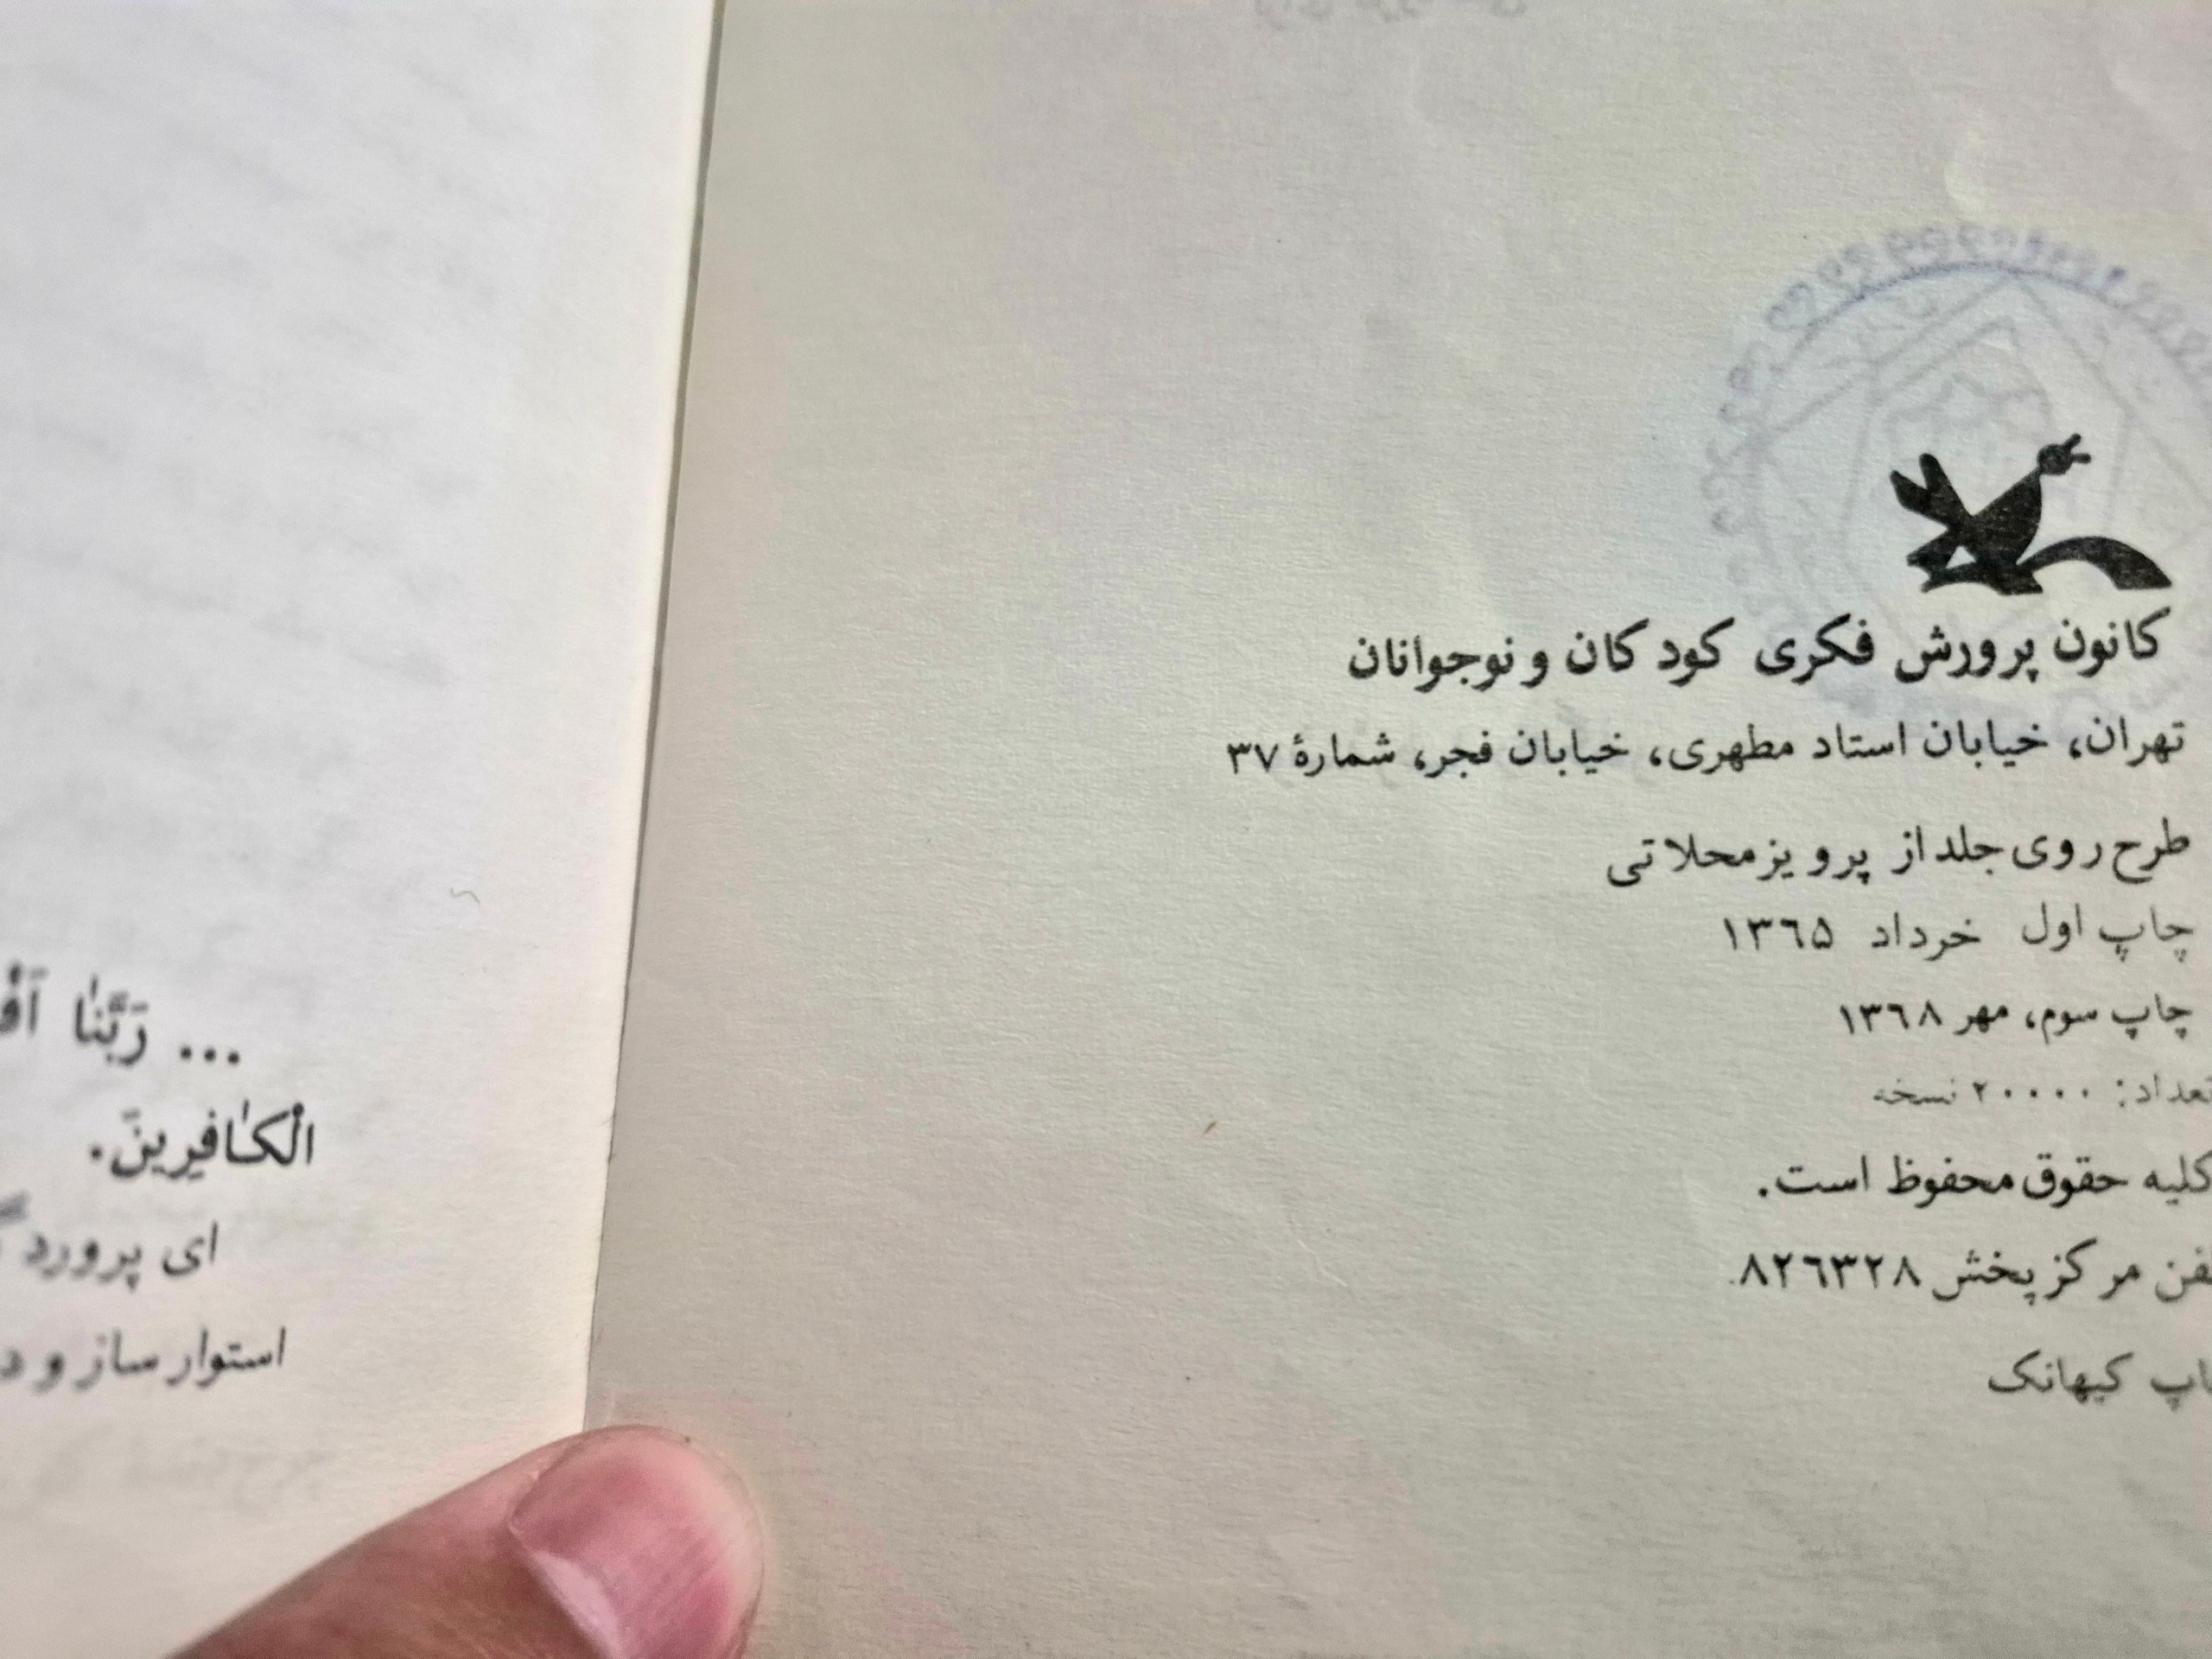 کانون پرورش فکری کودکان و نوجوانان
تهران، خیابان استاد مطهری، خیابان فجر، شمارهٔ ۳۷
طرح روی جلد از پرویز محلاتی
چاپ اول خرداد ۱۳۶۵
چاپ سوم، مهر ۱۳۶۸
تعداد: ۲۰۰۰۰ نسخه
کلیه حقوق محفوظ است.
مرکز پخش ۸۲۶۳۲۸
کیهانک
... رَبَّنٰا
الْکٰافِرِینَ.
ای
استوار ساز و